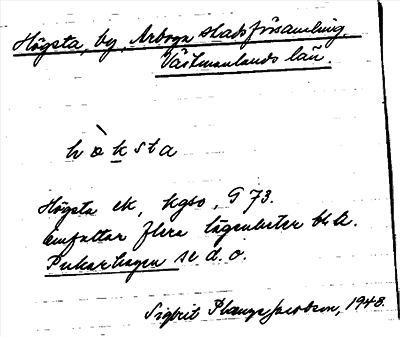 Högsta, by, Arboga stadsförsamling
Västmanlands län.
hὰksta
Högsta ek, kgso, G 73.
Omfattar flera lägenheter bl.a.
Pukarhagen se d. o.
Sigbrit Plange Jacobson, 1948.